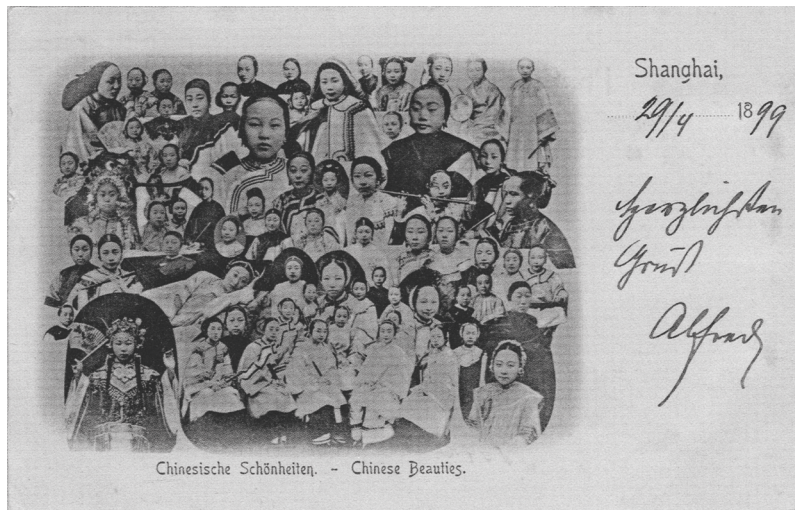 Shanghai,
29/4 1899
Herzlichsten
Gruß
Alfred
Chinesische Schönheiten. - Chinese Beauties.